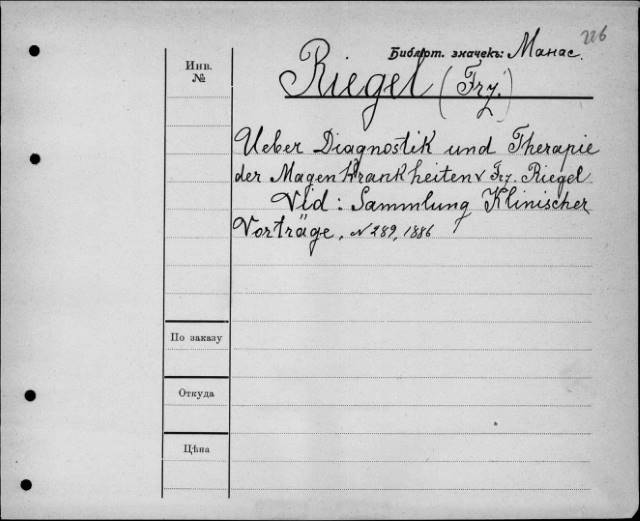 226
Библіот. значекъ: Манас.
Инв.
№
Riegel (Frz.)
Ueber Diagnostik und Therapie
der Magenkrankheiten v Frz. Riegel.
Vid: Sammlung Klinischer
Vorträge. N 289, 1886
По заказу
Откуда
Цѣна